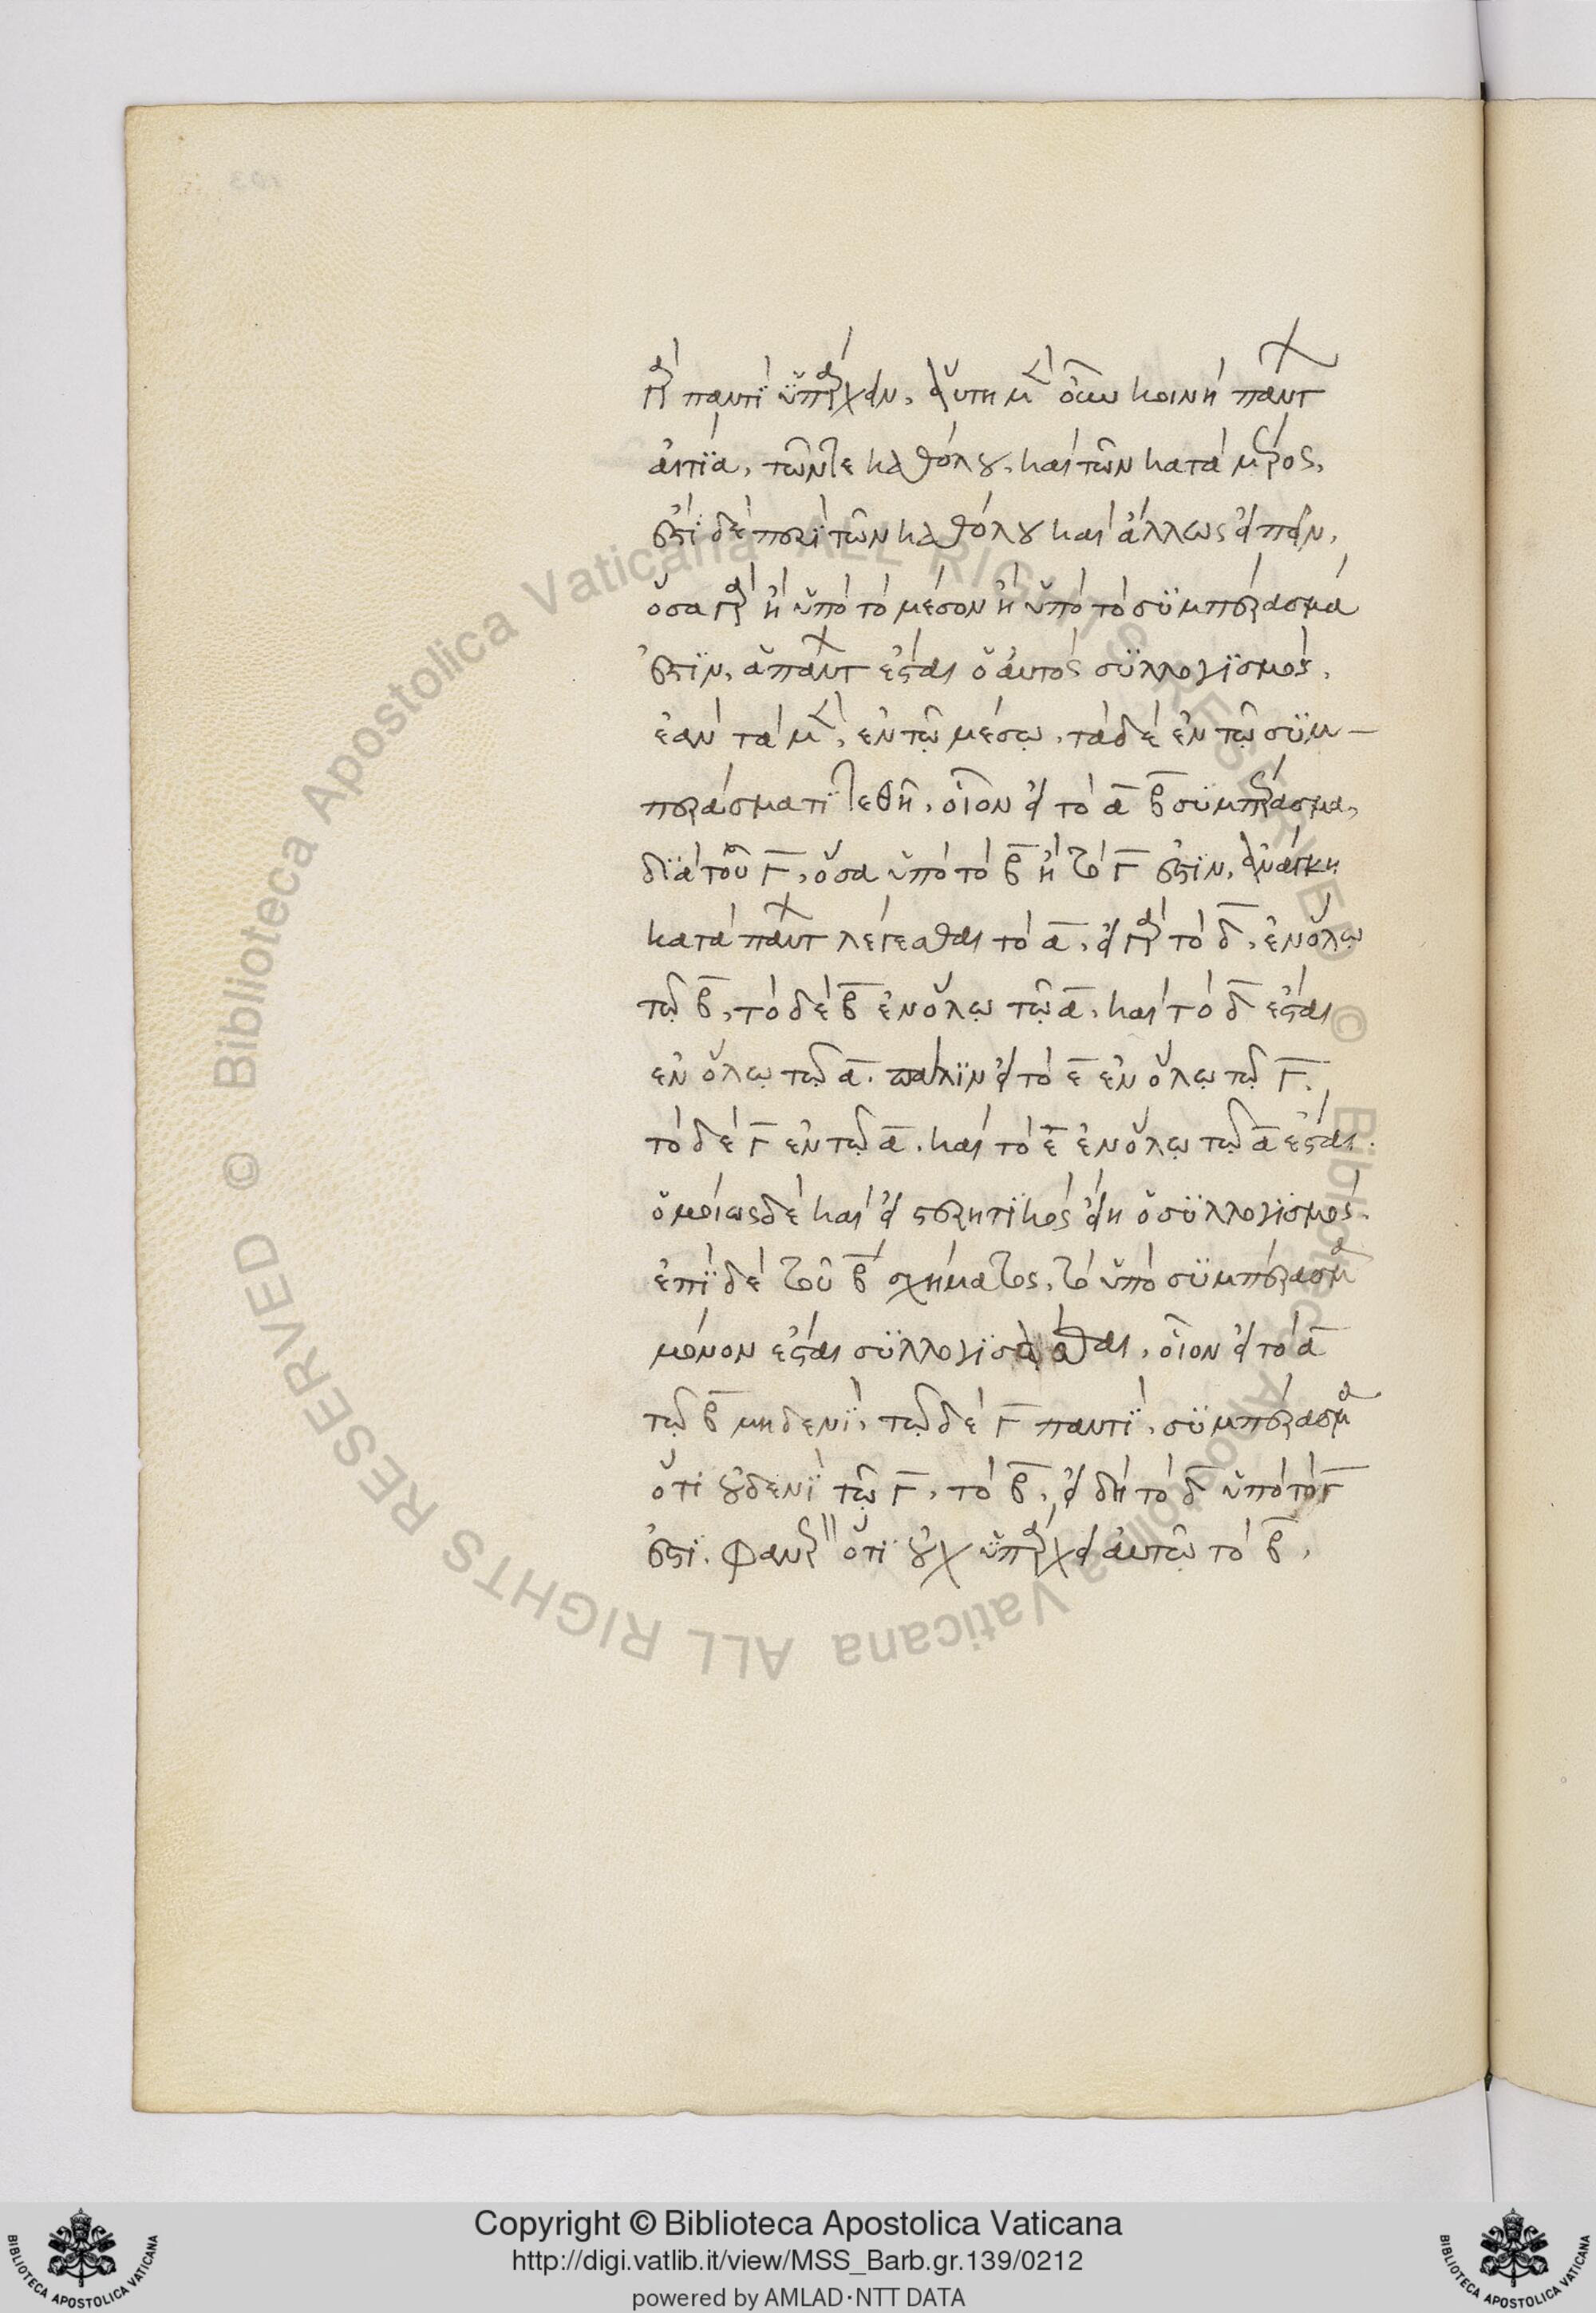 γὰρ παντὶ ὑπάρχειν. αὕτη μὲν οὖν κοινὴ πάντων
αἰτία, τῶν τε καθόλου, καὶ τῶν κατὰ μέρος.
ἔστι δὲ περὶ τῶν καθόλου καὶ ἄλλως εἰπεῖν.
ὅσα γὰρ ἢ ὑπὸ τὸ μέσον ἢ ὑπὸ τὸ συμπέρασμά
ἐστιν, ἁπάντων ἔσται ὁ αὐτὸς συλλογισμός.
ἐὰν τὰ μὲν, ἐν τῷ μέσῳ, τὰ δὲ ἐν τῷ συμ-
περάσματι τεθῇ. οἷον εἰ τὸ α β συμπέρασμα,
διὰ τοῦ Γ, ὅσα ὑπὸ τὸ β ἢ τὸ Γ ἐστὶν, ἀνάγκη
κατὰ πάντων λέγεσθαι τὸ α. εἰ γὰρ τὸ δ, ἐν ὅλῳ
τῷ β, τὸ δὲ β ἐν ὅλῳ τῷ α. καὶ τὸ δ ἔσται
ἐν ὅλῳ τῷ α. πάλιν εἰ τὸ ε ἐν ὅλῳ τῷ Γ.
τὸ δὲ Γ ἐν τῷ α. καὶ τὸ ε ἐν ὅλῳ τῷ α ἔσται.
ὁμοίως δὲ καὶ εἰ στερητικὸς εἴη ὁ συλλογισμός.
ἐπὶ δὲ τοῦ β σχήματος, τὸ ὑπὸ συμπέρασμα
μόνον ἔσται συλλογίσασθαι, οἷον εἰ τὸ α
τῷ β μηδενὶ, τῷ δὲ Γ παντὶ, συμπέρασμα
ὅτι οὐδενὶ τῷ Γ, τὸ β, εἰ δὴ τὸ δ ὑπὸ τὸ Γ
ἐστὶ. φανερὸν ὅτι οὐχ ὑπάρχει αὐτῷ τὸ β,
Copyright © Biblioteca Apostolica Vaticana
http://digi.vatlib.it/view/MSS_Barb.gr.139/0212
powered by AMLAD·NTT DATA